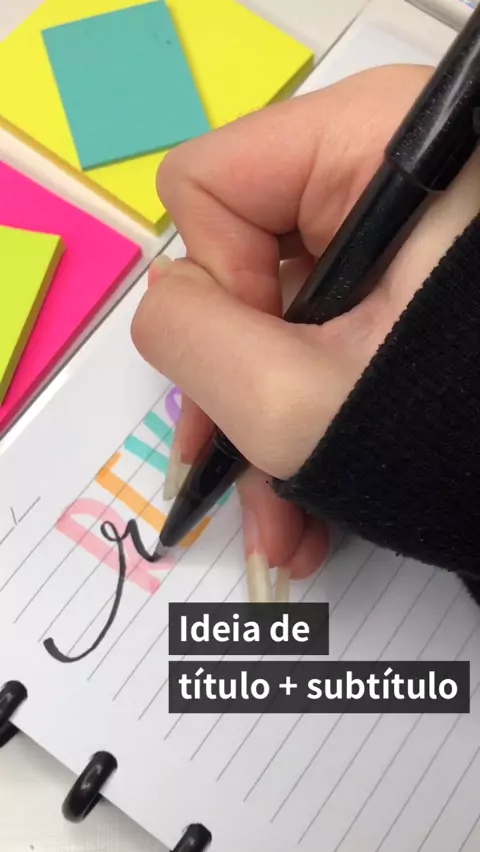 REVO
r
Ideia de
título + subtítulo